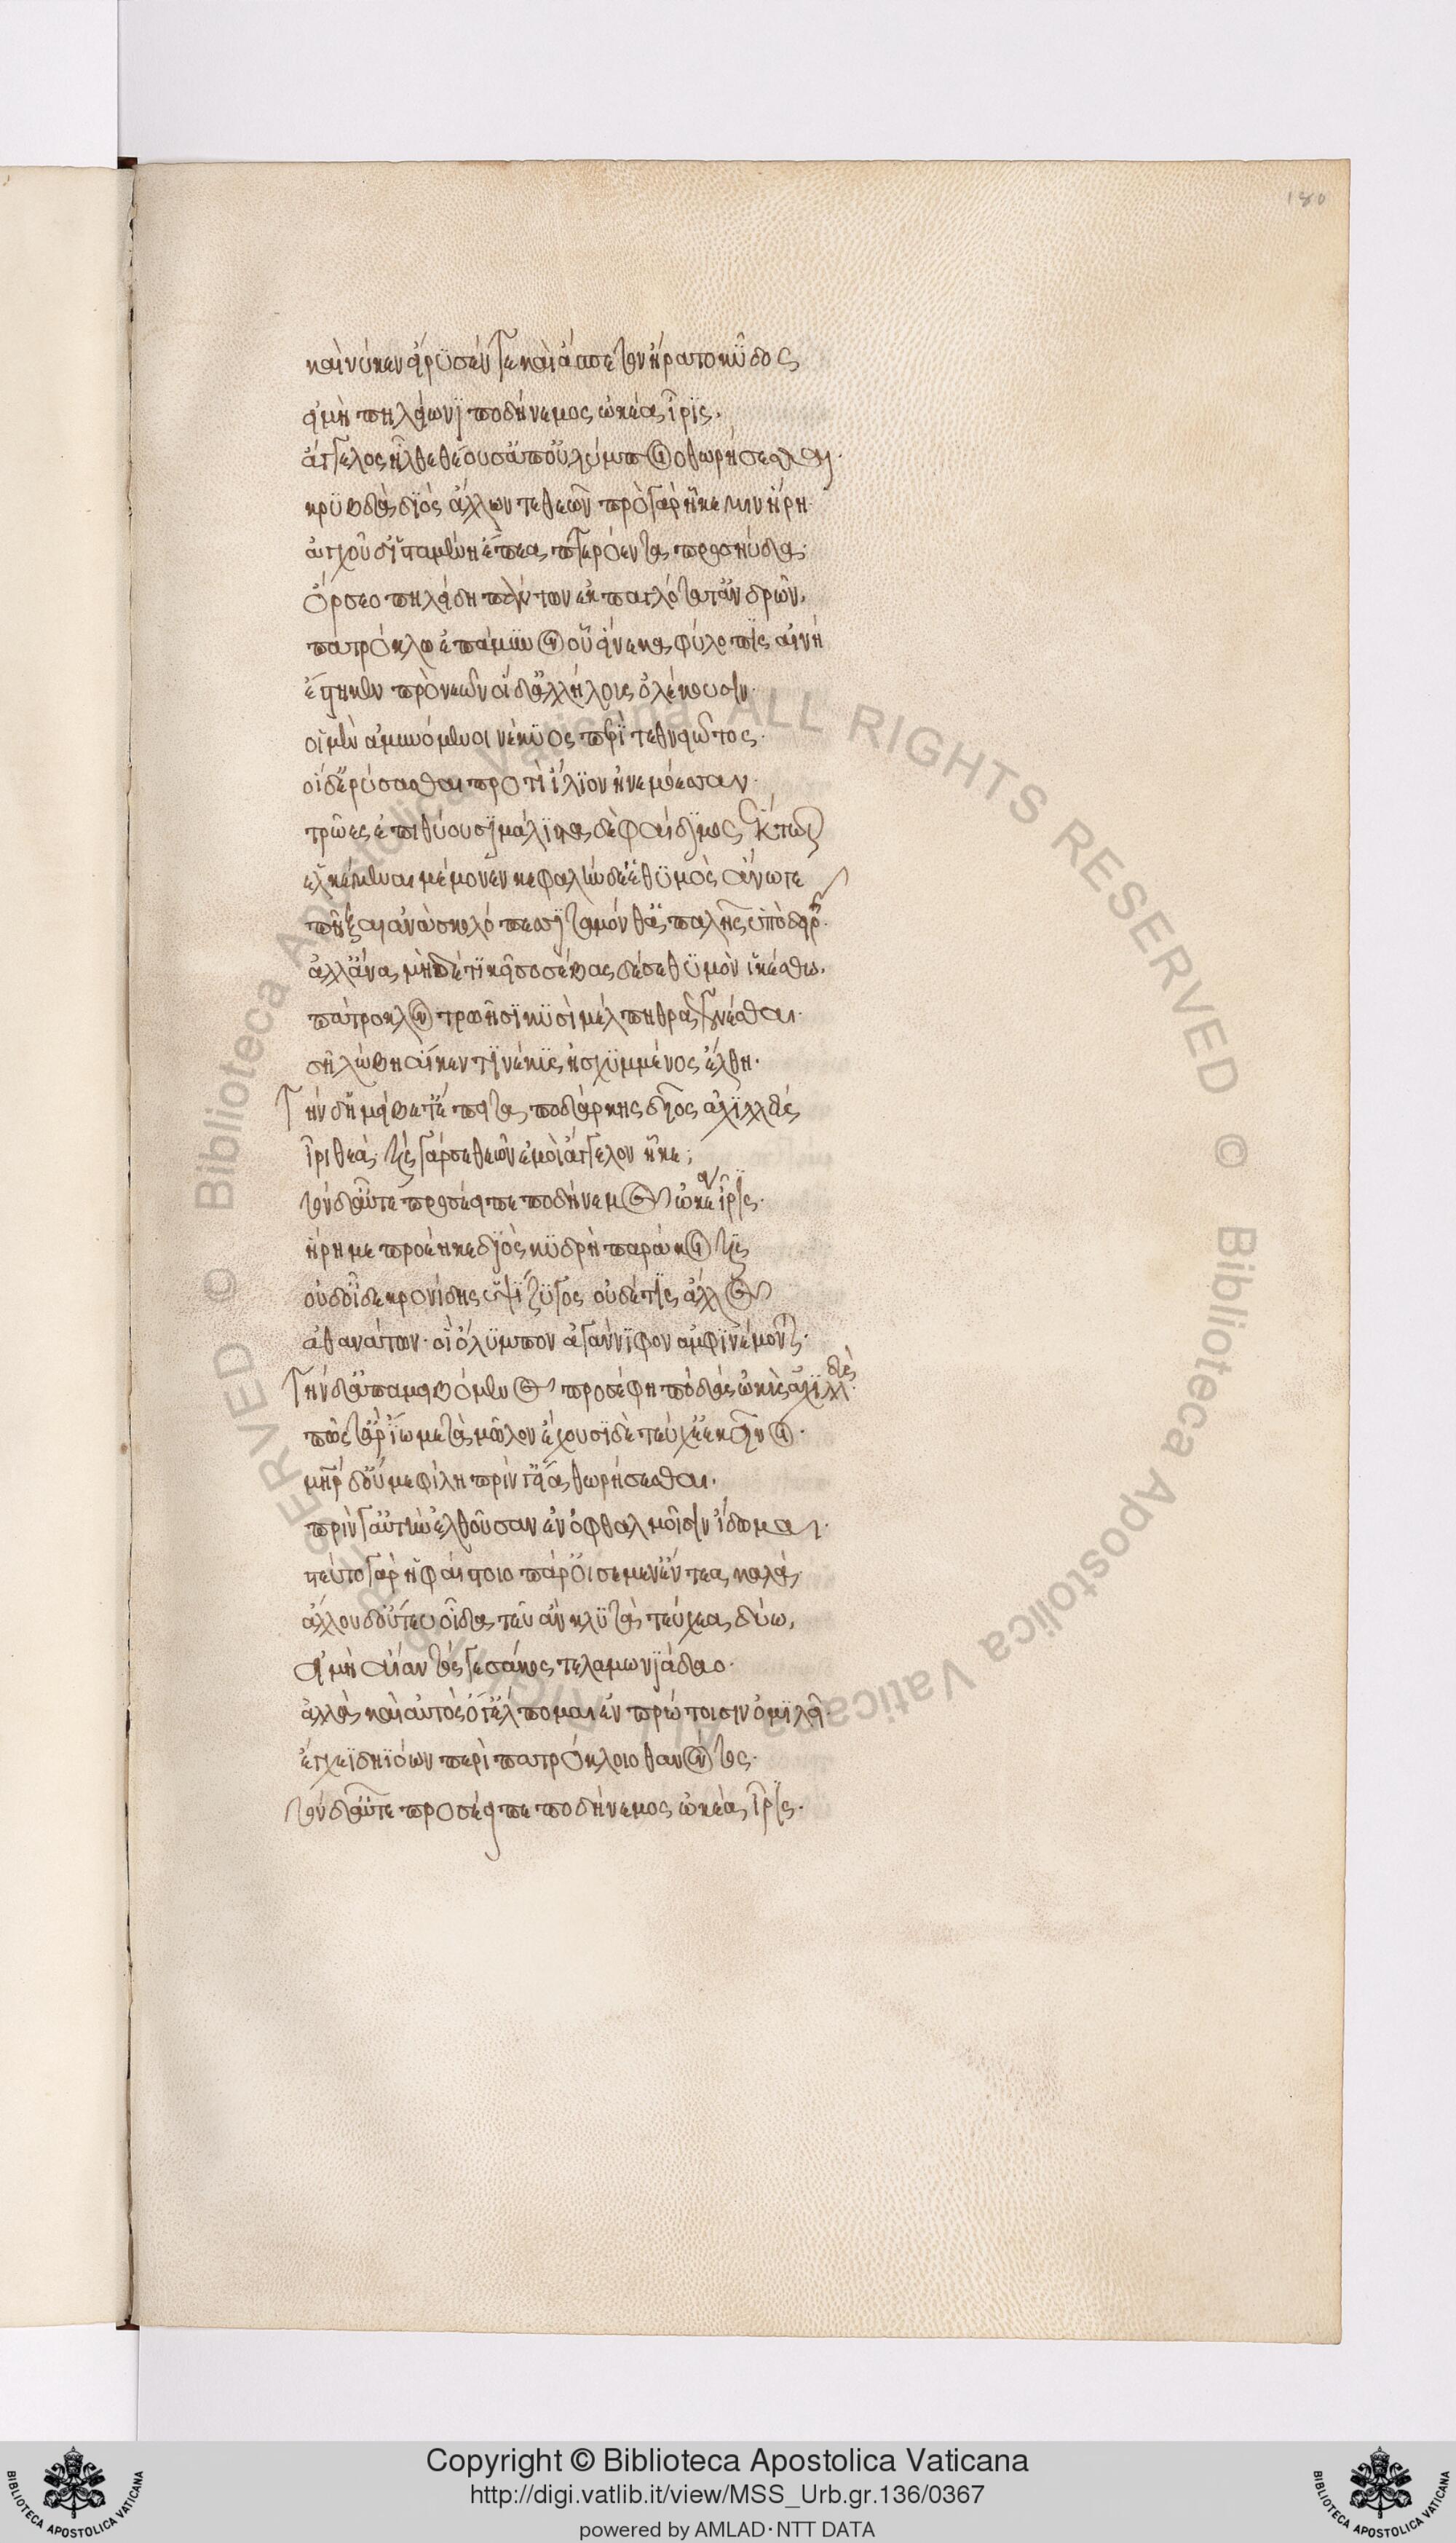 180
καί νύ κεν εἴρυσέν τε καὶ ἄσπετον ἤρατο κῦδος
εἰ μὴ πηλείωνι ποδήνεμος ὠκέα ἶρις.
ἄγγελος ἦλθε θέουσ' ἀπ' οὐλύμπου θωρήσεσθαι·
κρύβδα διὸς ἄλλων τε θεῶν· πρὸ γὰρ ἧκέ μιν ἥρη·
ἀγχοῦ δ' ἱσταμένη ἔπεα πτερόεντα προσηύδα·
ὄρσεο πηλείδη πάντων ἐκπαγλότατ' ἀνδρῶν.
πατρόκλω ἐπάμυνον οὗ εἵνεκα φύλοπις αἰνὴ
ἕστηκεν πρὸ νεῶν· οἱ δ' ἀλλήλους ὀλέκουσιν·
οἱ μὲν ἀμυνόμενοι νέκυος περὶ τεθνειῶτος·
οἱ δ' ἐρύσασθαι προτὶ ἴλιον ἠνεμόεσσαν·
τρῶες ἐπιθύουσι· μάλιστα δὲ φαίδιμος ἕκτωρ
ἑλκέμεναι μέμονεν· κεφαλὴν δέ ἑ θυμὸς ἄνωγε
πῆξαι ἀνὰ σκολόπεσσι ταμόνθ' ἁπαλῆς ἀπὸ δειρῆς·
ἀλλ' ἄνα μηδέτι κεῖσο· σέβας δέ σε θυμὸν ἱκέσθω.
πάτροκλον τρωῆσι κυσὶ μέλπηθρα γενέσθαι·
σοὶ λώβη αἴ κέν τι νέκυς ἠσχυμμένος ἔλθη·
τὴν δ' ἠμείβετ' ἔπειτα ποδάρκης δῖος ἀχιλλεύς
ἶρι θεά· τίς γάρ σε θεῶν ἐμοὶ ἄγγελον ἧκε;
τὸν δ' αὖτε προσέειπε ποδήνεμος ὠκέα ἶρις·
ἥρη με προέηκε διὸς κυδρὴ παράκοιτις
οὐδ' οἶδε κρονίδης ὑψίζυγος οὐδέ τις ἄλλος
ἀθανάτων· οἳ ὄλυμπον ἀγάννιφον ἀμφινέμονται·
τὴν δ' ἀπαμειβόμενος προσέφη πόδας ὠκὺς ἀχιλλεύς·
πῶς τ' ἄρ' ἴω μετὰ μῶλον· ἔχουσι δὲ τεύχε' ἐκεῖνοι·
μήτηρ δ' οὔ με φίλη πρίν γ' εἴα θωρήσεσθαι·
πρίν γ' αὐτὴν ἐλθοῦσαν ἐν ὀφθαλμοῖσιν ἴδωμαι·
στεῦτο γὰρ ἡφαίστοιο πάρ' οἰσέμεν ἔντεα καλά·
ἄλλου δ' οὔ τευ οἶδα τεῦ ἂν κλυτὰ τεύχεα δύω.
εἰ μὴ αἴαντός γε σάκος τελαμωνιάδαο·
ἀλλὰ καὶ αὐτὸς ὅ γ' ἔλπομαι ἐν πρώτοισιν ὁμιλεῖ·
ἔγχεϊ δηϊόων περὶ πατρόκλοιο θανόντος·
τὸν δ' αὖτε προσέειπε ποδήνεμος ὠκέα ἶρις·
Copyright © Biblioteca Apostolica Vaticana
http://digi.vatlib.it/view/MSS_Urb.gr.136/0367
powered by AMLAD·NTT DATA